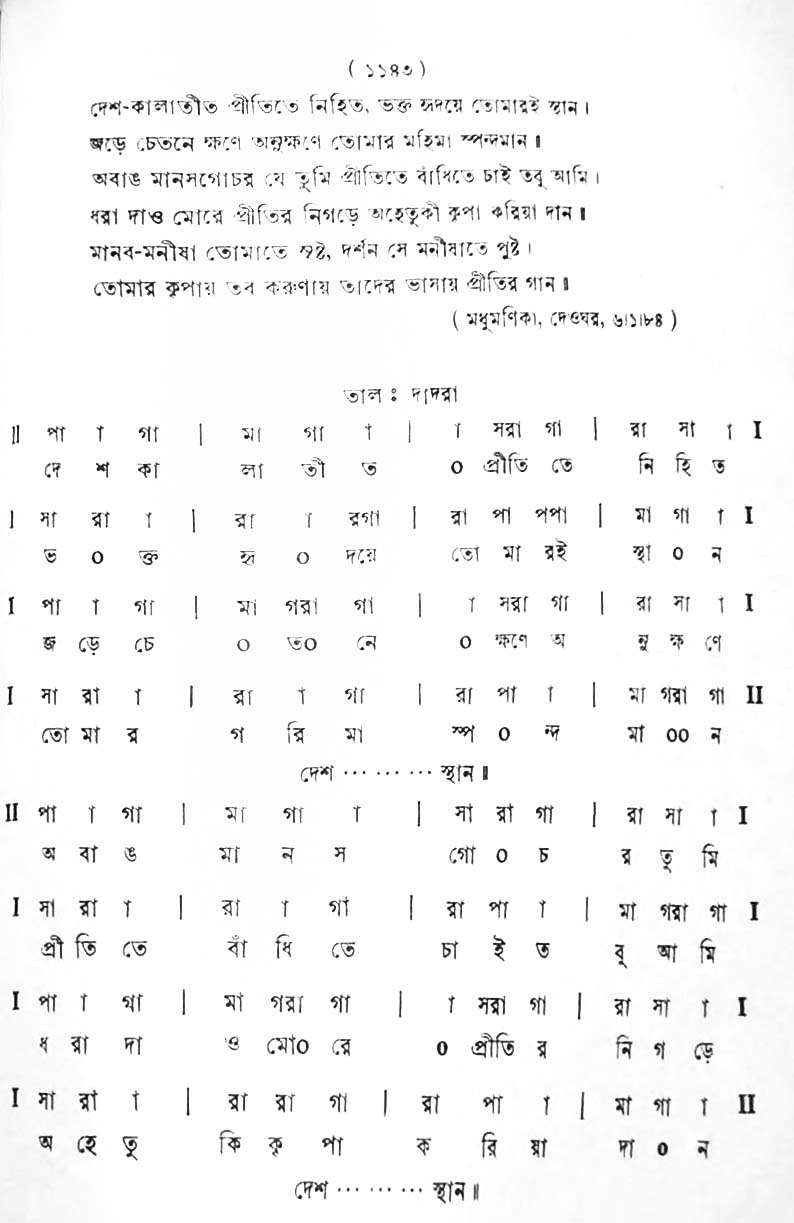 ( ১১৪৩ )
দেশ-কালাতীত প্রীতিতে নিহিত, ভক্ত হৃদয়ে তোমারই স্থান।
জড়ে চেতনে ক্ষণে অনুক্ষণে তোমার মহিমা স্পন্দমান॥
অবাঙ মানসগোচর যে তুমি প্রীতিতে বাঁধিতে চাই তবু আমি।
ধরা দাও মোরে প্রীতির নিগড়ে অহেতুকী কৃপা করিয়া দান॥
মানব-মনীষা তোমাতে সৃষ্ট, দর্শন সে মনীষাতে পুষ্ট।
তোমার কৃপায় তব করুণায় তাদের ভাসায় প্রীতির গান॥
( মধুমণিকা, দেওঘর, ৬।১।৮৪ )
তাল ঃ দাদরা
॥ পা া গা | মা গা া | া সরা গা | রা সা া I
দে শ কা লা তী ত ০ প্রীতি তে নি হি ত
I সা রা া | রা া রগা | রা পা পপা | মা গা া I
ভ ০ ক্ত হৃ ০ দয়ে তো মা রই স্থা ০ ন
I পা া গা | মা গরা গা | া সরা গা | রা সা া I
জ ড়ে চে ০ ত০ নে ০ ক্ষণে অ নু ক্ষ ণে
I সা রা া | রা া গা | রা পা া | মা গরা গা II
তো মা র গ রি মা স্প ০ ন্দ মা ০০ ন
দেশ ⋯ ⋯ ⋯ স্থান॥
II পা া গা | মা গা া | সা রা গা | রা সা া I
অ বা ঙ মা ন স গো ০ চ র তু মি
I সা রা া | রা া গা | রা পা া | মা গরা গা I
প্রী তি তে বাঁ ধি তে চা ই ত বু আ মি
I পা া গা | মা গরা গা | া সরা গা | রা সা া I
ধ রা দা ও মো০ রে ০ প্রীতি র নি গ ড়ে
I সা রা া | রা রা গা | রা পা া | মা গা া II
অ হে তু কি কৃ পা ক রি য়া দা ০ ন
দেশ ⋯ ⋯ ⋯ স্থান॥